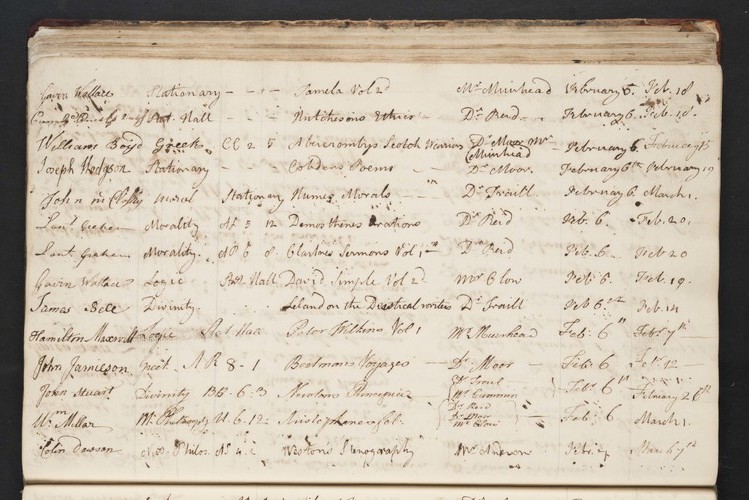 Gavin Wallace Stationary - - - Pamela Vol 2d Mr Muirhead February 6. Feb. 18
Stat. Hall - - Hutchisons Ethics Dr. Reid February 6. Feb. 18.
Williams Boyd Greek CC 2 5 Abercrombys Scotch Warriors Dr. Moor Mr Muirhead February 6. February 15
Joseph Hodgson Stationary Poems - Dr. Moor. February 6th February 19
John Stationary Humes Morals - - Dr. Traill February 6. March 1.
Laut Graham Morality 5 12 Demosthenes Orations Dr. Reid Feb. 6. Feb. 20.
Laut Graham Morality. 6 8. Clarkes Sermons Vol 1 Dr. Reid Feb. 6. Feb 20
Gavin Wallace Logic Stat. Hall David Simple Vol 2d Mr Clow Feb. 6. Feb. 19.
James Bell Divinity. Leland on the Deistical writers Dr. Traill Feb 6th Feb. 14
Hamilton Maxwell Logic Stat Hall Peter Wilkins Vol 1 Mr Muirhead Feb: 6th Febr. 7th
John Jamieson AR 8 - 1 Voyages Dr. Moor Feb: 6 Feb. 12
John Stuart Divinity BB. 6. 3 Newtons Principia Dr Trail Mr Cumming Feb. 6th February 26th
Wm Millar 6. 12 Aristophanes Dr Reid Dr Moor Mr Clow Feb: 6 March 1.
Colin Dawson Philos. 4. Stenography Mr Anderson Feb. March 7th